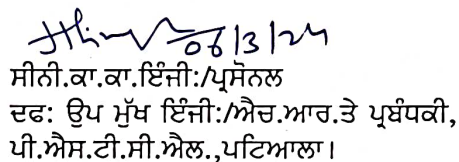 06/3/24
ਸੀਨੀ.ਕਾ.ਕਾ.ਇੰਜੀ:/ਪ੍ਰਸੋਨਲ
ਦਫ: ਉਪ ਮੁੱਖ ਇੰਜੀ:/ਐਚ.ਆਰ.ਤੇ ਪ੍ਰਬੰਧਕੀ,
ਪੀ.ਐਸ.ਟੀ.ਸੀ.ਐਲ.,ਪਟਿਆਲਾ।